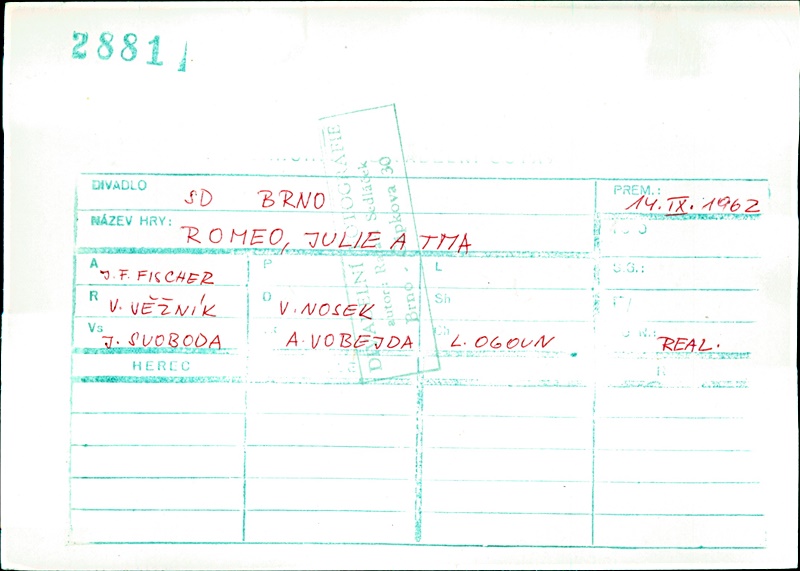 2881
DIVADELNÍ FOTOGRAFIE
autor: Sedláček
Brno - 30
DIVADLO SD BRNO PREM.: 14. IX. 1962
NÁZEV HRY: ROMEO, JULIE A TMA
A J. F. FISCHER P L S.G.:
R V. VĚŽNÍK O V. NOSEK Sh
Vs J. SVOBODA A. VOBEJDA Ch L. OGOUN REAL.
HEREC R